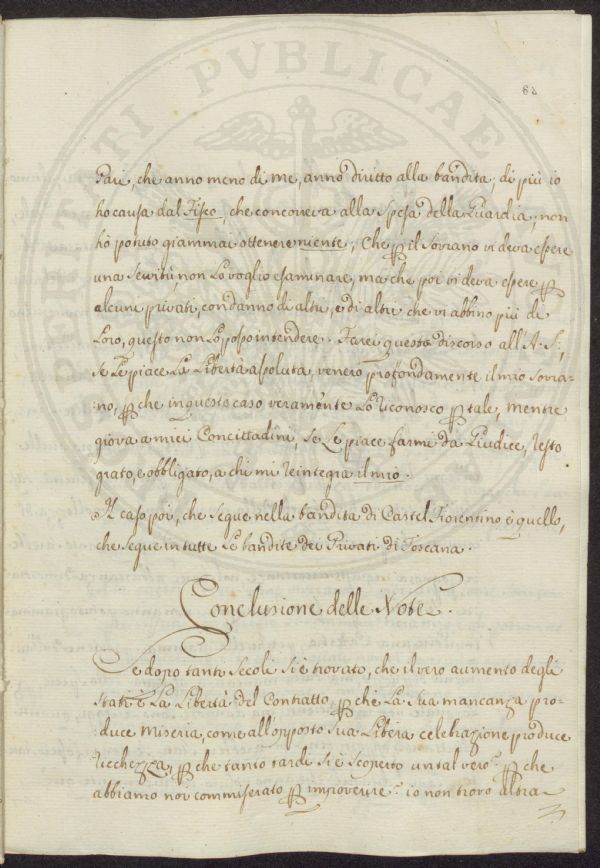 PROSPERITATI PVBLICAE
81
Pari, che anno meno di me, anno diritto alla bandita; di più io
ho causa dal Fisco, che concorreva alla spesa della Guardia, non
hò potuto giammai ottenere niente; Che p il Sovrano vi deva essere
una Servitù, non Lo voglio esaminare, ma che poi vi deva essere p
alcuni privati, con danno di altri, e di altri che vi abbino più di
Loro, questo non Lo posso intendere. Farei questo discorso all'A. S:,
se Le piace La Libertà assoluta, venero profondamente il mio Sovra=
no, p che in questo caso veramente Lo riconosco p tale, mentre
giova a miei Concittadini, se Le piace farmi da Giudice, resto
grato, e obbligato, a chi mi reintegra il mio.
Il caso poi, che segue nella bandita di Castel Fiorentino è quello,
che segue in tutte Le bandite dei Privati di Toscana.
Conclusione delle Note.
Se dopo tanti secoli si è trovato, che il vero aumento degli
Stati è La Libertà del Contratto, p che La Sua mancanza pro=
duce miseria, come all'opposto sua Libera celebrazione produce
ricchezza, p che tanto tarde si è scoperto un tal vero? p che
abbiamo noi commiserato p impoverire? io non trovo altra